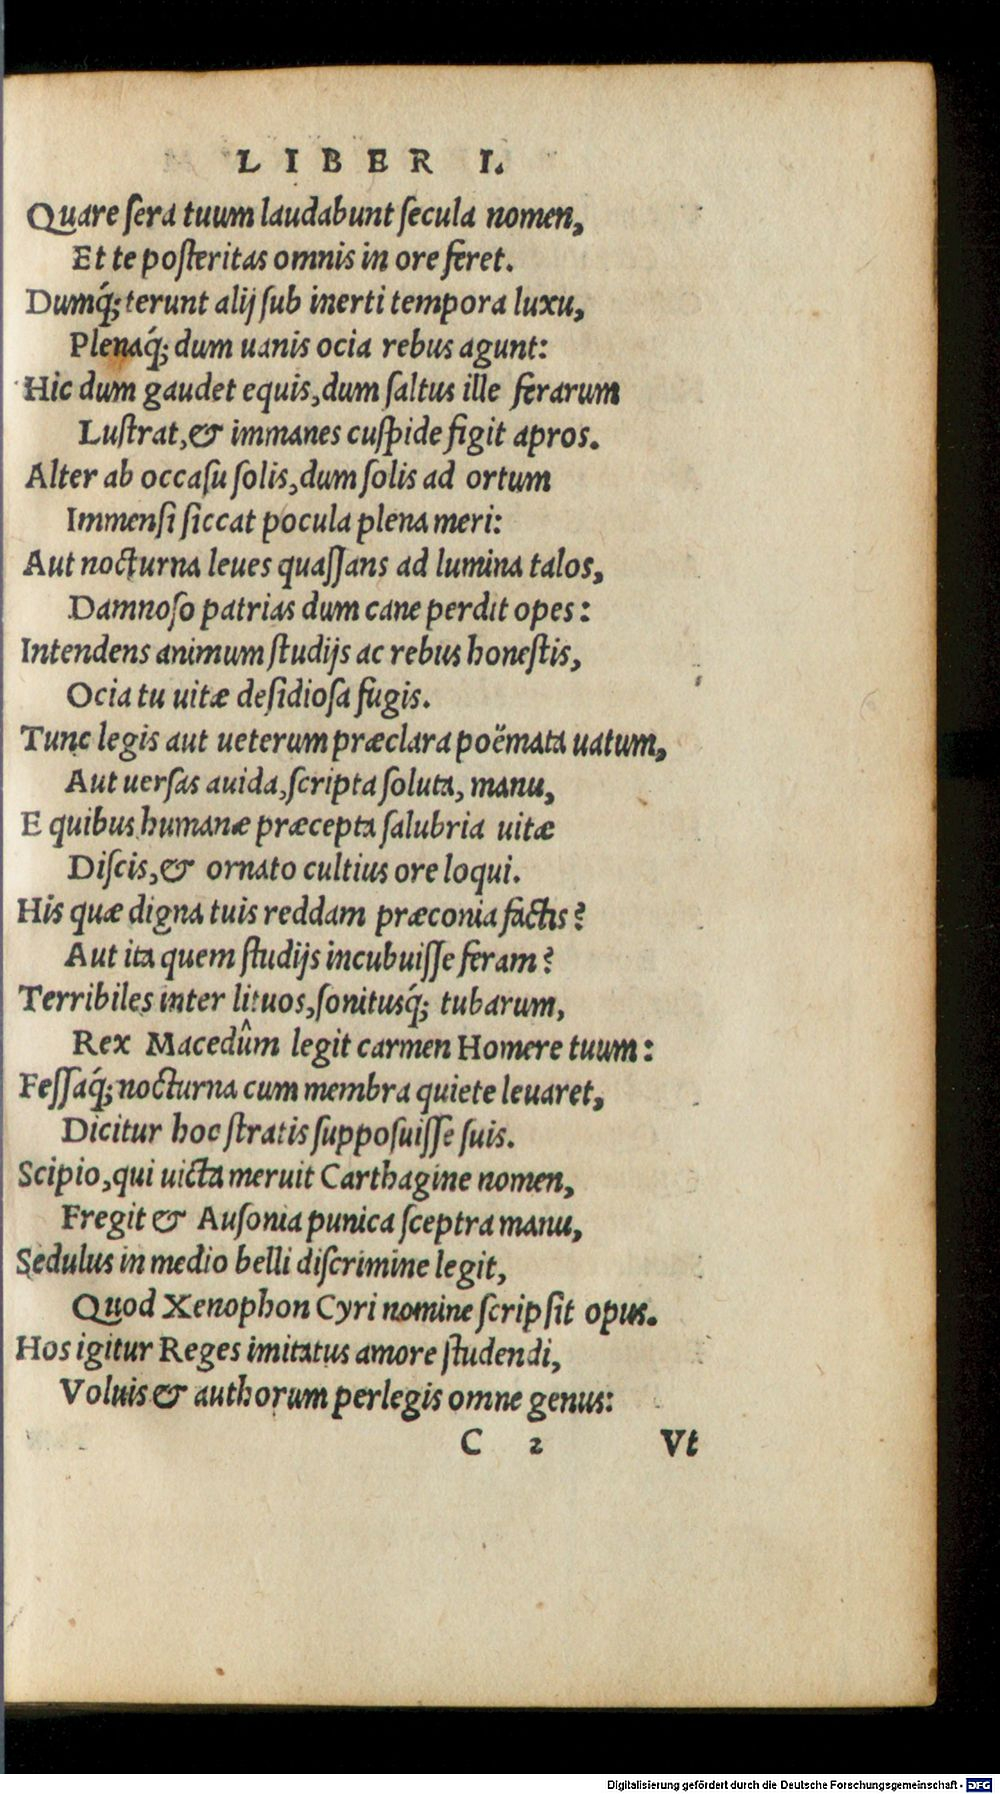 LIBER I.
Quare ſera tuum laudabunt ſecula nomen,
Et te poſteritas omnis in ore feret.
Dumq́; terunt alij ſub inerti tempora luxu,
Plenaq́; dum uanis ocia rebus agunt:
Hic dum gaudet equis, dum ſaltus ille ferarum
Luſtrat, & immanes cuſpide figit apros.
Alter ab occaſu ſolis, dum ſolis ad ortum
Immenſi ſiccat pocula plena meri:
Aut nocturna leues quaſſans ad lumina talos,
Damnoſo patrias dum cane perdit opes:
Intendens animum ſtudijs ac rebus honeſtis,
Ocia tu uitæ deſidioſa fugis.
Tunc legis aut ueterum præclara poëmata uatum,
Aut uerſas auida, ſcripta ſoluta, manu,
E quibus humanæ præcepta ſalubria uitæ
Diſcis, & ornato cultius ore loqui.
His quæ digna tuis reddam præconia factis?
Aut ita quem ſtudijs incubuiſſe feram?
Terribiles inter lituos, ſonitusq́; tubarum,
Rex Macedûm legit carmen Homere tuum:
Feſſaq́; nocturna cum membra quiete leuaret,
Dicitur hoc ſtratis ſuppoſuiſſe ſuis.
Scipio, qui uicta meruit Carthagine nomen,
Fregit & Auſonia punica ſceptra manu,
Sedulus in medio belli diſcrimine legit,
Quod Xenophon Cyri nomine ſcripſit opus.
Hos igitur Reges imitatus amore ſtudendi,
Voluis & authorum perlegis omne genus:
C 2 Vt
Digitalisierung gefördert durch die Deutsche Forschungsgemeinschaft - DFG